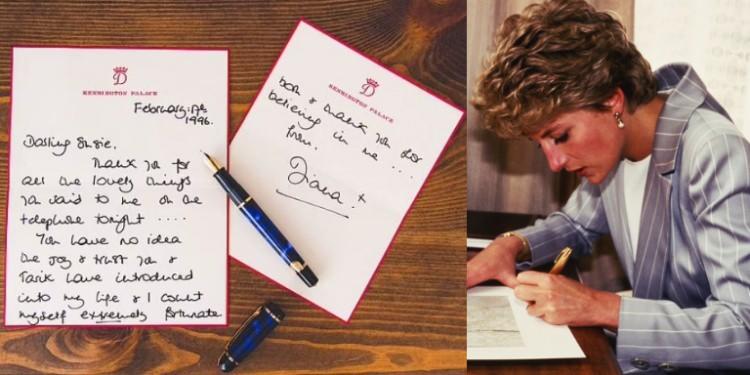 D
KENSINGTON PALACE
February 17th
1996.
Darling Susie,
Thank you for
all the lovely things
you said to me on the
telephone tonight ....
You have no idea
the joy & trust you &
Tarik have introduced
into my life & I count
myself extremely fortunate
D
KENSINGTON PALACE
both & thank you for
believing in me ....
from,
Diana. x